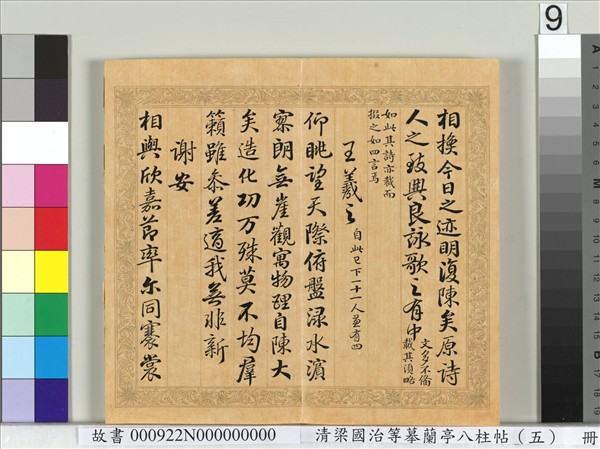 相换今日之迹明復陳矣原詩
人之致興良詠歌之有由
文多不備
載其須略
如此其詩亦裁而
掇之如四言焉
王羲之
自此已下一十一人並有四
仰眺望天際俯盤淥水濱
寥朗無崖觀寓物理自陳大
矣造化功万殊莫不均羣
籟雖參差適我無非新
謝安
相與欣嘉節率尔同褰裳
9
故書 000922N000000000
清梁國治等摹蘭亭八柱帖（五） 冊